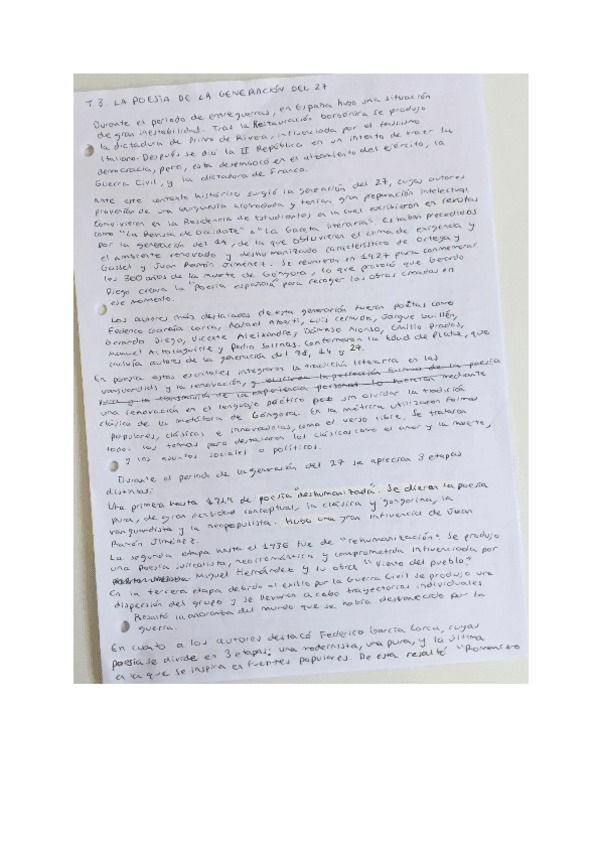 T.3. LA POESÍA DE LA GENERACIÓN DEL 27
Durante el periodo de entreguerras, en España hubo una situación
de gran inestabilidad. Tras la Restauración borbónica se produjo
la dictadura de Primo de Rivera, influenciada por el fascismo
italiano. Después se dió la II República en un intento de traer la
democracia, pero, esta desembocó en el alzamiento del ejército, la
Guerra Civil, y la dictadura de Franco.
Ante este contexto histórico surgió la generación del 27, cuyos autores
provenían de una burguesía acomodada y tenían gran preparación intelectual.
Convivieron en la Residencia de Estudiantes en la cual escribieron en revistas
como "La Revista de Occidente" o "La Gaceta literaria". Estaban precedidos
por la generación del 14, de la que obtuvieron el clima de exigencia y
el ambiente renovado y deshumanizado característico de Ortega y
Gasset y Juan Ramón Jiménez. Se reunieron en 1927 para conmemorar
los 300 años de la muerte de Góngora, lo que provocó que Gerardo
Diego creara la "Poesía española" para recoger las obras creadas en
ese momento.
Los autores más destacados de esta generación fueron poetas como
Federico García Lorca, Rafael Alberti, Luis Cernuda, Jorge Guillén,
Gerardo Diego, Vicente Aleixandre, Dámaso Alonso, Emilio Prados,
Manuel Altolaguirre y Pedro Salinas. Conformaron la Edad de Plata, que
incluía autores de la generación del 98, 14 y 27.
En poesía estos escritores integraron la tradición literaria en las
vanguardias y la renovación, la poesía
la experiencia personal lo hicieron mediante
una renovación en el lenguaje poético pero sin olvidar la tradición
clásica de la metáfora de Góngora. En la métrica utilizaron formas
populares, clásicas e innovadoras, como el verso libre. Se trataron
todos los temas pero destacaron los clásicos como el amor y la muerte,
y los asuntos sociales o políticos.
Durante el periodo de la generación del 27 se aprecian 3 etapas
distintas:
Una primera hasta 1929 de poesía "deshumanizada". Se dieron la poesía
pura, de gran densidad conceptual, la clásica y gongorina, la
vanguardista y la neopopulista. Hubo una gran influencia de Juan
Ramón Jiménez.
La segunda etapa hasta el 1936 fue de "rehumanización". Se produjo
una poesía surrealista, neorromántica y comprometida influenciada por
Miguel Hernández y su obra "Viento del pueblo".
En la tercera etapa debido al exilio por la Guerra Civil se produjo una
dispersión del grupo y se llevaron a cabo trayectorias individuales.
Resaltó la añoranza del mundo que se había desvanecido por la
guerra.
En cuanto a los autores destacó Federico García Lorca, cuya
poesía se divide en 3 etapas: una modernista, una pura, y la última
en la que se inspira en fuentes populares. De esta resaltó "Romancero